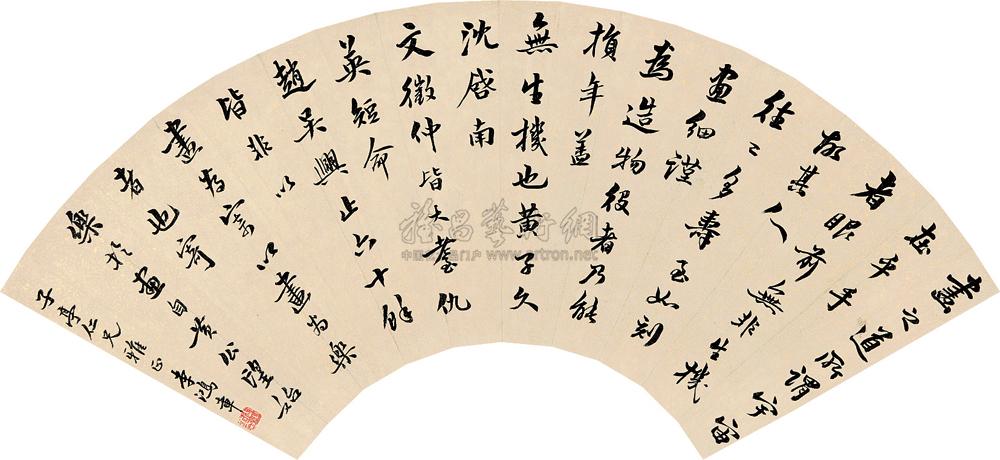 畫之道所謂宇宙
在乎手
者眼前無非生機
故其人
往〻多壽至如刻
畫細謹
為造物役者乃能
損年蓋
無生機也黃子久
沈啓南
文徵仲皆大耋仇
英短命
趙吳興止六十餘
皆非以
畫為寄以畫為樂
者也寄
樂於畫自黃公望始
子亭仁兄雅正 李鴻章
雅昌藝術網
www.artron.net